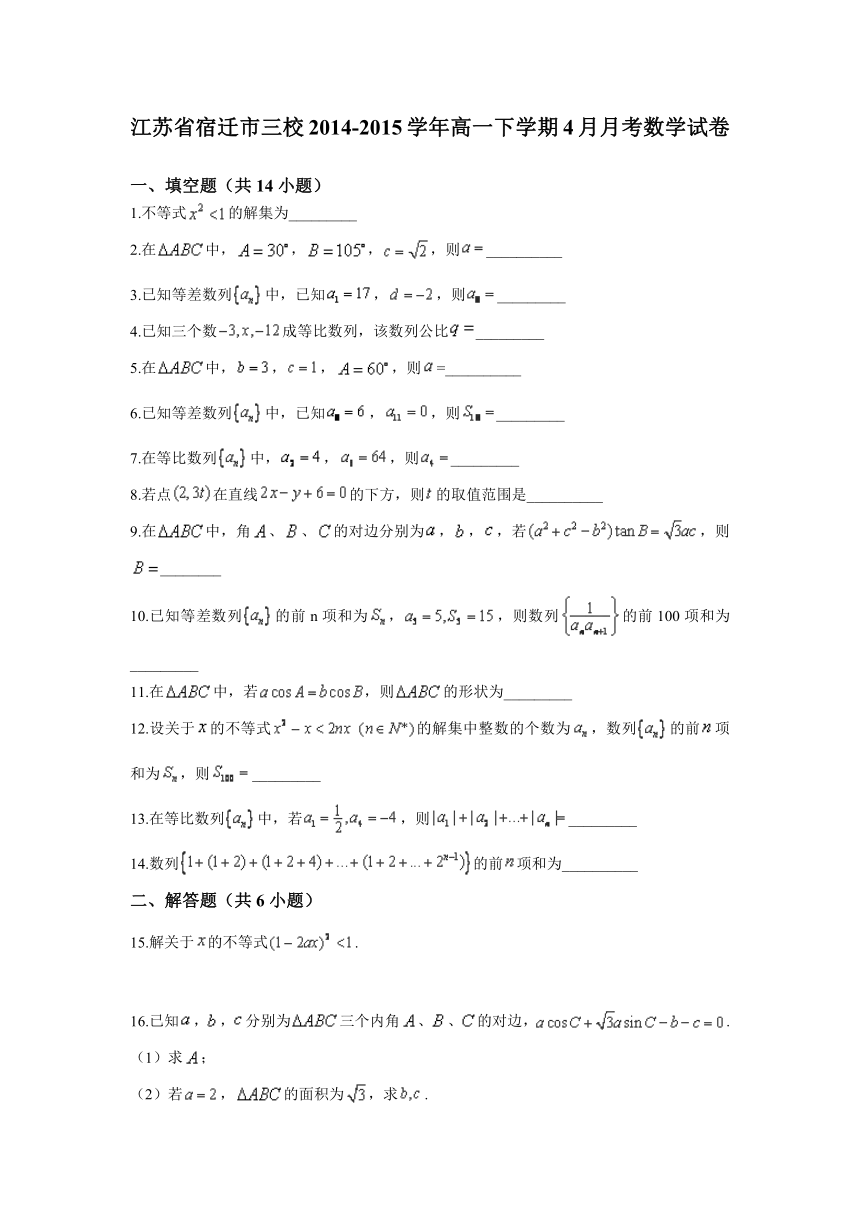 江苏省宿迁市三校2014-2015学年高一下学期4月月考数学试卷
一、填空题（共14小题）
1.不等式x²<1的解集为_________
2.在ΔABC中，A=30°，B=105°，c=√2，则a=__________
3.已知等差数列{aₙ}中，已知a₁=17，d=-2，则a =_________
4.已知三个数-3,x,-12成等比数列，该数列公比q=_________
5.在ΔABC中，b=3，c=1，A=60°，则a=__________
6.已知等差数列{aₙ}中，已知a =6，a₁₁=0，则S =_________
7.在等比数列{aₙ}中，a =4，a =64，则a₄=_________
8.若点(2,3t)在直线2x-y+6=0的下方，则t的取值范围是__________
9.在ΔABC中，角A、B、C的对边分别为a，b，c，若(a²+c²-b²)tanB=√3ac，则
B=________
10.已知等差数列{aₙ}的前n项和为Sₙ，a =5,S =15，则数列{1/(aₙaₙ₊₁)}的前100项和为
_________
11.在ΔABC中，若acosA=bcosB，则ΔABC的形状为_________
12.设关于x的不等式x²-x<2nx (n∈N*)的解集中整数的个数为aₙ，数列{aₙ}的前n项
和为Sₙ，则S₁₀₀=_________
13.在等比数列{aₙ}中，若a₁=1/2,a₄=-4，则|a₁|+|a₂|+...+|aₙ|=_________
14.数列{1+(1+2)+(1+2+4)+...+(1+2+...+2ⁿ⁻¹)}的前n项和为__________
二、解答题（共6小题）
15.解关于x的不等式(1-2ax)²<1.
16.已知a,b,c分别为ΔABC三个内角A、B、C的对边,acosC+√3asinC-b-c=0.
（1）求A;
（2）若a=2，ΔABC的面积为√3,求b,c.